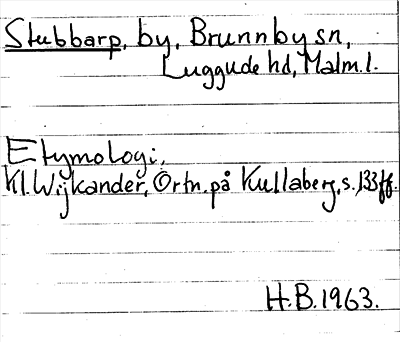 Stubbarp, by, Brunnby sn,
Luggude hd, Malm. l.
Etymologi.
Kl. Wijkander, Ortn. på Kullaberg, s. 133 ff.
H.B. 1963.